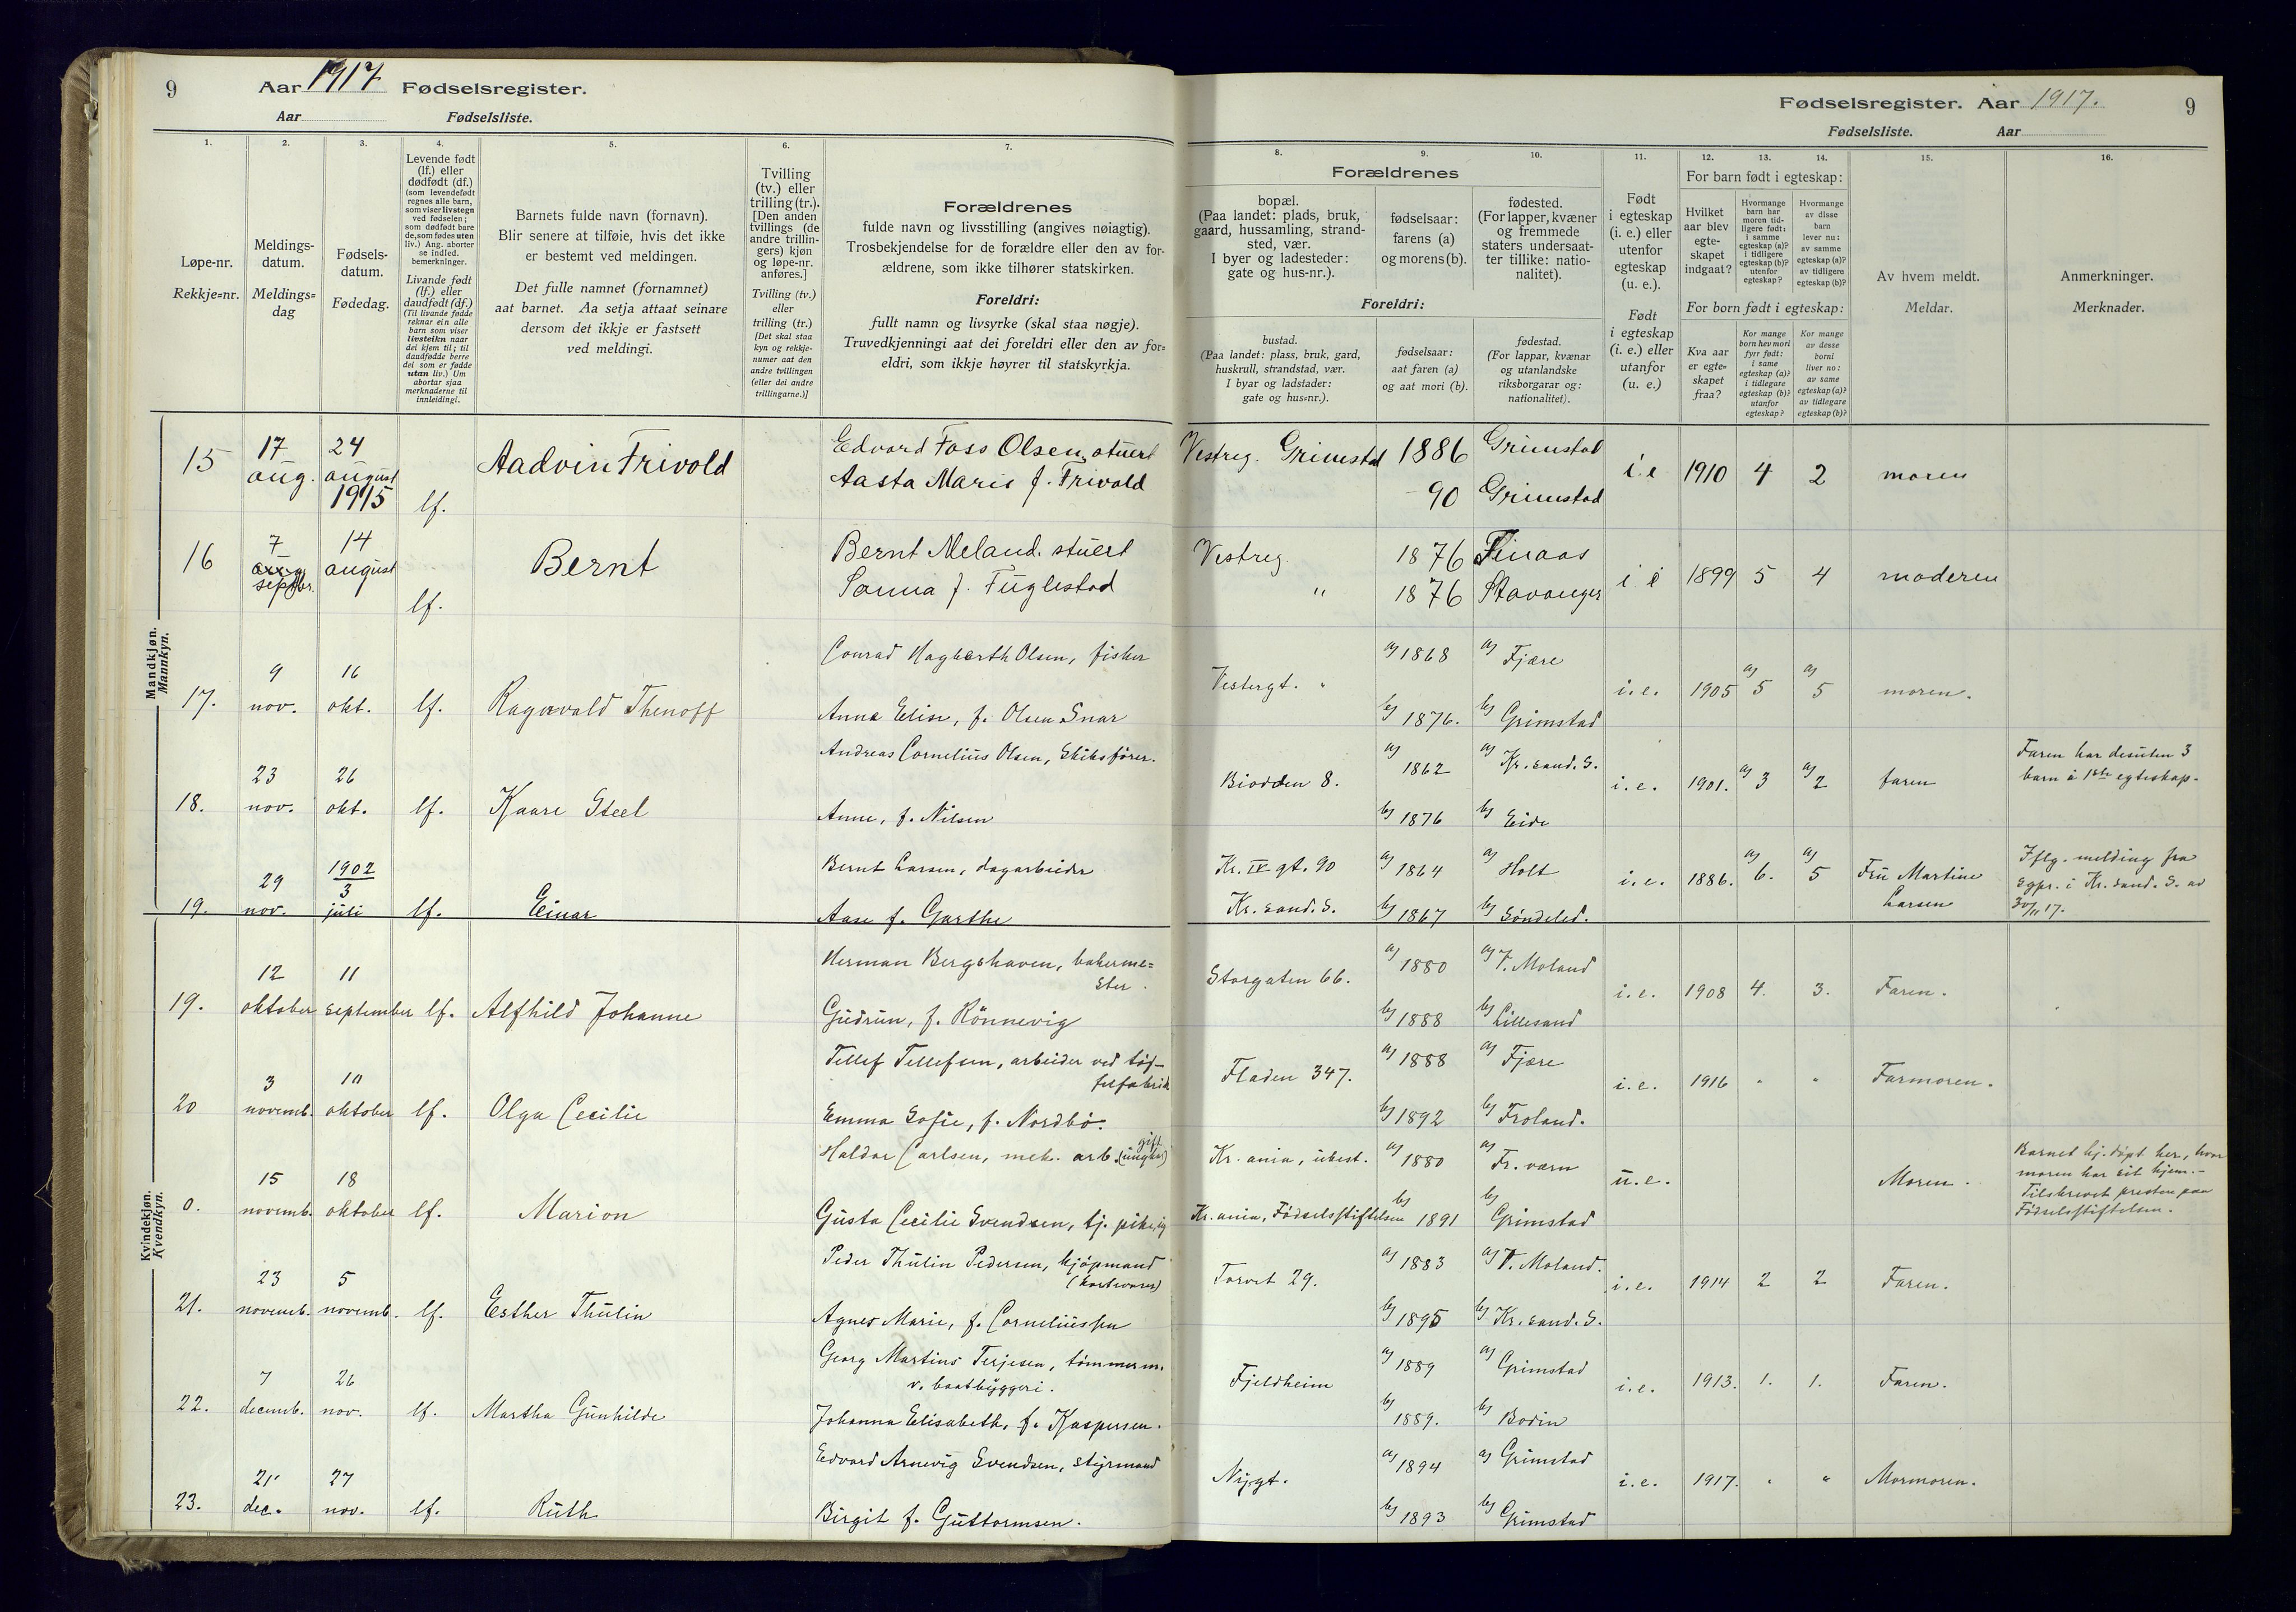 9 Aar 1917 Fødselsregister.
Aar Fødselsliste.
Fødselsregister. Aar 1917. 9
Fødselsliste. Aar
1. 2. 3. 4. 5. 6. 7.
Løpe-nr.
Rekkje=nr.
Meldings-
datum.
Meldings=
dag
Fødsels-
datum.
Fødedag.
Levende født
(lf.) eller
dødfødt (df.)
(som levendefødt
regnes alle barn,
som viser livstegn
ved fødselen;
som dødfødt bare
de, som fødes uten
liv.) Ang. aborter
se indled.
bemerkninger.
Livande født
(lf.) eller
daudfødt (df.)
(Til livande fødde
reknar ein alle
barn som viser
livsteikn naar
dei kjem til; til
daudfødde berre
dei som er fødde
utan liv.) Um
abortar sjaa
merknaderne til
innleidingi.
Barnets fulde navn (fornavn).
Blir senere at tilføie, hvis det ikke
er bestemt ved meldingen.
Det fulle namnet (fornamnet)
aat barnet. Aa setja attaat seinare
dersom det ikkje er fastsett
ved meldingi.
Tvilling
(tv.) eller
trilling (tr.).
[Den anden
tvillings (de
andre trillin-
gers) kjøn
og løpe-nr.
anføres.]
Tvilling (tv.)
eller
trilling (tr.)
[Det skal staa
kyn og rekkje-
numer aat den
andre tvillingen
(eller dei andre
trillingarne.)]
Forældrenes
fulde navn og livsstilling (angives nøiagtig).
Trosbekjendelse for de forældre eller den av for-
ældrene, som ikke tilhører statskirken.
Foreldri:
fullt namn og livsyrke (skal staa nøgje).
Truvedkjenningi aat dei foreldri eller den av for=
eldri, som ikkje høyrer til statskyrkja.
8. 9. 10. 11. 12. 13. 14. 15. 16.
Forældrenes
bopæl.
(Paa landet: plads, bruk,
gaard, hussamling, strand-
sted, vær.
I byer og ladesteder:
gate og hus-nr.).
fødselsaar:
farens (a)
og morens (b).
fødested.
(For lapper, kvæner
og fremmede
staters undersaat-
ter tillike: natio-
nalitet).
Foreldri:
bustad.
(Paa landet: plass, bruk, gard,
huskrull, strandstad, vær.
I byar og ladstader:
gate og hus=nr.).
fødselsaar:
aat faren (a)
og aat mori (b).
fødestad.
(For lappar, kvænar
og utanlandske
riksborgarar og:
nationalitet).
Født
i egteskap
(i. e.) eller
utenfor
egteskap
(u. e.).
Født
i egteskap
(i. e.) eller
utanfor
(u. e.)
For barn født i egteskap:
Hvilket
aar blev
egte-
skapet
indgaat?
Hvormange
barn har
moren tid-
ligere født:
i samme
egteskap (a)?
i tidligere
egteskap (b)?
utenfor
egteskap?
Hvormange
av disse
barn
lever nu:
av samme
egteskap (a)?
av tidligere
egteskap (b)?
For born født i egteskap:
Kva aar
er egte=
skapet
fraa?
Kor mange
born hev mori
fyrr født:
i same
egteskap (a)?
i tidlegare
egteskap (b)?
utanfor
egteskap?
Kor mange
av desse
borni
liver no:
av same
egteskap (a)?
av tidlegare
egteskap (b)?
Av hvem meldt.
Meldar.
Anmerkninger.
Merknader.
Mandkjøn.
Mannkyn.
15 17 aug. 24 august 1915 lf. Aadvin Trivold
Edvard Foss Olsen, stuert
Aasta Marie f. Trivold
Vestreg. Grimstad 1886 Grimstad
90 Grimstad
i. e 1910 4 2 moren
16 7 septbr. 14 august lf. Bernt
Bernt Meland. stuert
Sanna f. Fuglestad
Vestreg. 1876 Finaas
" 1876 Stavanger
i e 1899 5 4 moderen
17. 9 nov. 16 okt. lf. Ragnvald Thenoff
Conrad Hagbarth Olsen, fisker
Anna Elise, f. Olsen Snar
Vestergt. a) 1868 a) Fjære
b) 1876. b) Grimstad
i. e. 1905 a) 5 a) 5 moren.
18. 23 nov. 26 okt. lf. Kaare Steel
Andreas Cornelius Olsen, Skibsfører.
Anne, f. Nilsen
Biodden 8. a) 1862 a) Kr. sand. S.
b) 1876 b) Eide
i. e. 1901. a) 3 a) 2 faren
Faren har desuten 3
barn i 1ste egteskap.
19. 29 nov. 1902 3 juli lf. Einar
Bernt Larsen, dagarbeider
Aase f. Garthe
Kr. IV gt. 90
Kr. sand. S.
a) 1864 a) Holt
b) 1867 b) Søndeled.
i. e. 1886. a) 6. a) 5 Fru Martine
Larsen
Iflg. melding fra
Sgpr. i Kr. sand. S. av
30/11 17.
Kvindekjøn.
Kvendkyn.
19. 12 oktober 11 september lf. Alfhild Johanne
Herman Bergshaven, bakerme=
ster.
Gudrun, f. Rønnevig
Storgaten 66. a) 1880 a) V. Moland
b) 1888 b) Lillesand
i. e. 1908 4. 3. Faren.
20 3 novemb. 10 oktober lf. Olga Cecilie
Tellef Tellefsen, arbeider ved tøf-
felfabrik
Emma Sofie, f. Nordbø.
Fladen 347. a) 1888 a) Fjære
b) 1892 b) Froland.
i. e. 1916 " " Farmoren.
0. 15 novemb. 18 oktober lf. Marion
Haldor Carlsen, mek. arb. gift
Gusta Cecilie Svendsen, tj. pike,
Kr. ania, ubest. a) 1880 a) Fr. værn
Kr. ania, Fødselsstiftelsen b) 1891 b) Grimstad
u. e. Moren.
Barnet hj. døpt her, hvor
moren har sit hjem.-
Tilskrevet presten paa
Fødselsstiftelsen.
21. 23 novemb. 5 novemb. lf. Esther Thulin
Peder Thulin Pedersen, kjøpmand
(kortevarer)
Agnes Marie, f. Corneliussen
Torvet 29. a) 1883 a) V. Moland.
b) 1895 b) Kr. sand. S.
i. e. 1914 2 2 Faren.
22. 7 decemb. 26 nov. lf. Martha Gunhilde
Georg Martins Terjesen, tømmerm.
v. baatbyggeri.
Johanna Elisabeth, f. Kaspersen.
Fjeldheim a) 1889 a) Grimstad
b) 1889. b) Bodin
i. e. 1913. 1. 1. Faren.
23. 21 dec. 27 nov. lf. Ruth
Edvard Arnevig Svendsen, styrmand
Birgit f. Guttormsen.
Nygt. a) 1894 a) Grimstad
b) 1893 b) Grimstad
i. e. 1917. " " Mormoren.